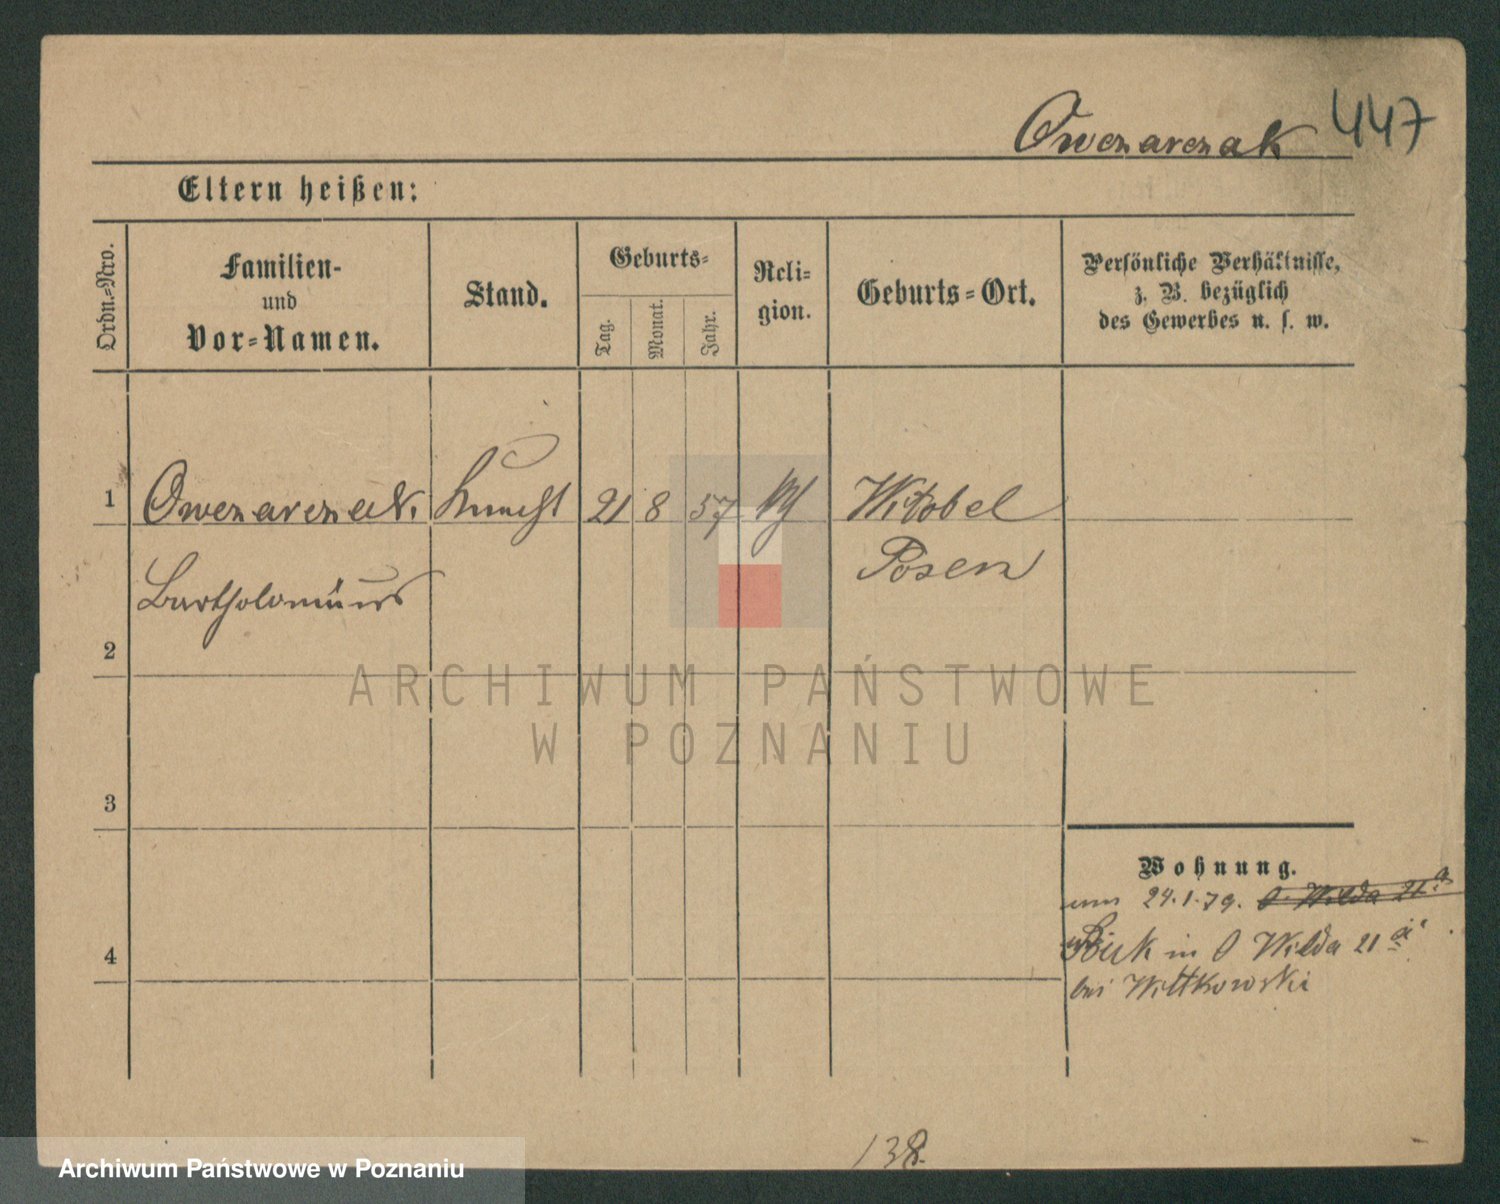 Owczarczak 447
Eltern heißen:
Ordn.-Nro.
Familien-
und
Vor-Namen.
Stand.
Geburts-
Tag.
Monat.
Jahr.
Reli-
gion.
Geburts-Ort.
Persönliche Verhältnisse,
z. B. bezüglich
des Gewerbes u. s. w.
1 Owczarczak. Knecht 21 8 57 Witobel
Posen
Bartholomäus
2
ARCHIWUM PAŃSTWOWE
W POZNANIU
3
Wohnung.
24.1.79. O. Wilda 21a
4
in O Wilda 21a
bei Wittkowski
138.
Archiwum Państwowe w Poznaniu